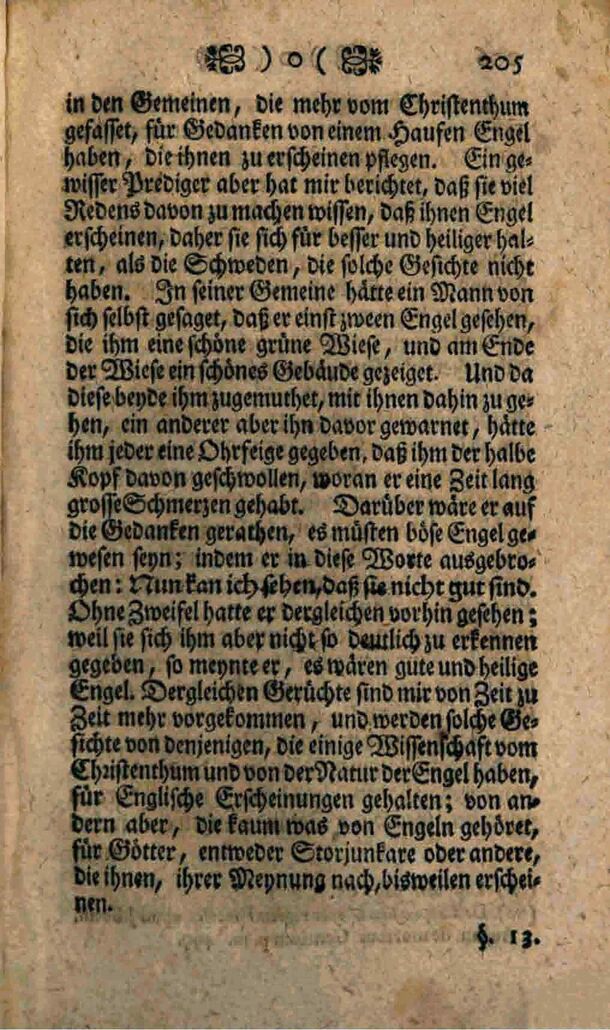 ) o ( 205
in den Gemeinen, die mehr vom Christenthum
gefasset, für Gedanken von einem Haufen Engel
haben, die ihnen zu erscheinen pflegen. Ein ge-
wisser Prediger aber hat mir berichtet, daß sie viel
Redens davon zu machen wissen, daß ihnen Engel
erscheinen, daher sie sich für besser und heiliger hal-
ten, als die Schweden, die solche Gesichte nicht
haben. In seiner Gemeine hätte ein Mann von
sich selbst gesaget, daß er einst zween Engel gesehen,
die ihm eine schöne grüne Wiese, und am Ende
der Wiese ein schönes Gebäude gezeiget. Und da
diese beyde ihm zugemuthet, mit ihnen dahin zu ge-
hen, ein anderer aber ihn davor gewarnet, hätte
ihm jeder eine Ohrfeige gegeben, daß ihm der halbe
Kopf davon geschwollen, woran er eine Zeit lang
grosse Schmerzen gehabt. Darüber wäre er auf
die Gedanken gerathen, es müsten böse Engel ge-
wesen seyn; indem er in diese Worte ausgebro-
chen: Nun kan ich sehen, daß sie nicht gut sind.
Ohne Zweifel hatte er dergleichen vorhin gesehen;
weil sie sich ihm aber nicht so deutlich zu erkennen
gegeben, so meynte er, es wären gute und heilige
Engel. Dergleichen Gerüchte sind mir von Zeit zu
Zeit mehr vorgekommen, und werden solche Ge-
sichte von denjenigen, die einige Wissenschaft vom
Christenthum und von der Natur der Engel haben,
für Englische Erscheinungen gehalten; von an-
dern aber, die kaum was von Engeln gehöret,
für Götter, entweder Storjunkare oder andere,
die ihnen, ihrer Meynung nach, bisweilen erschei-
nen.
§. 13.